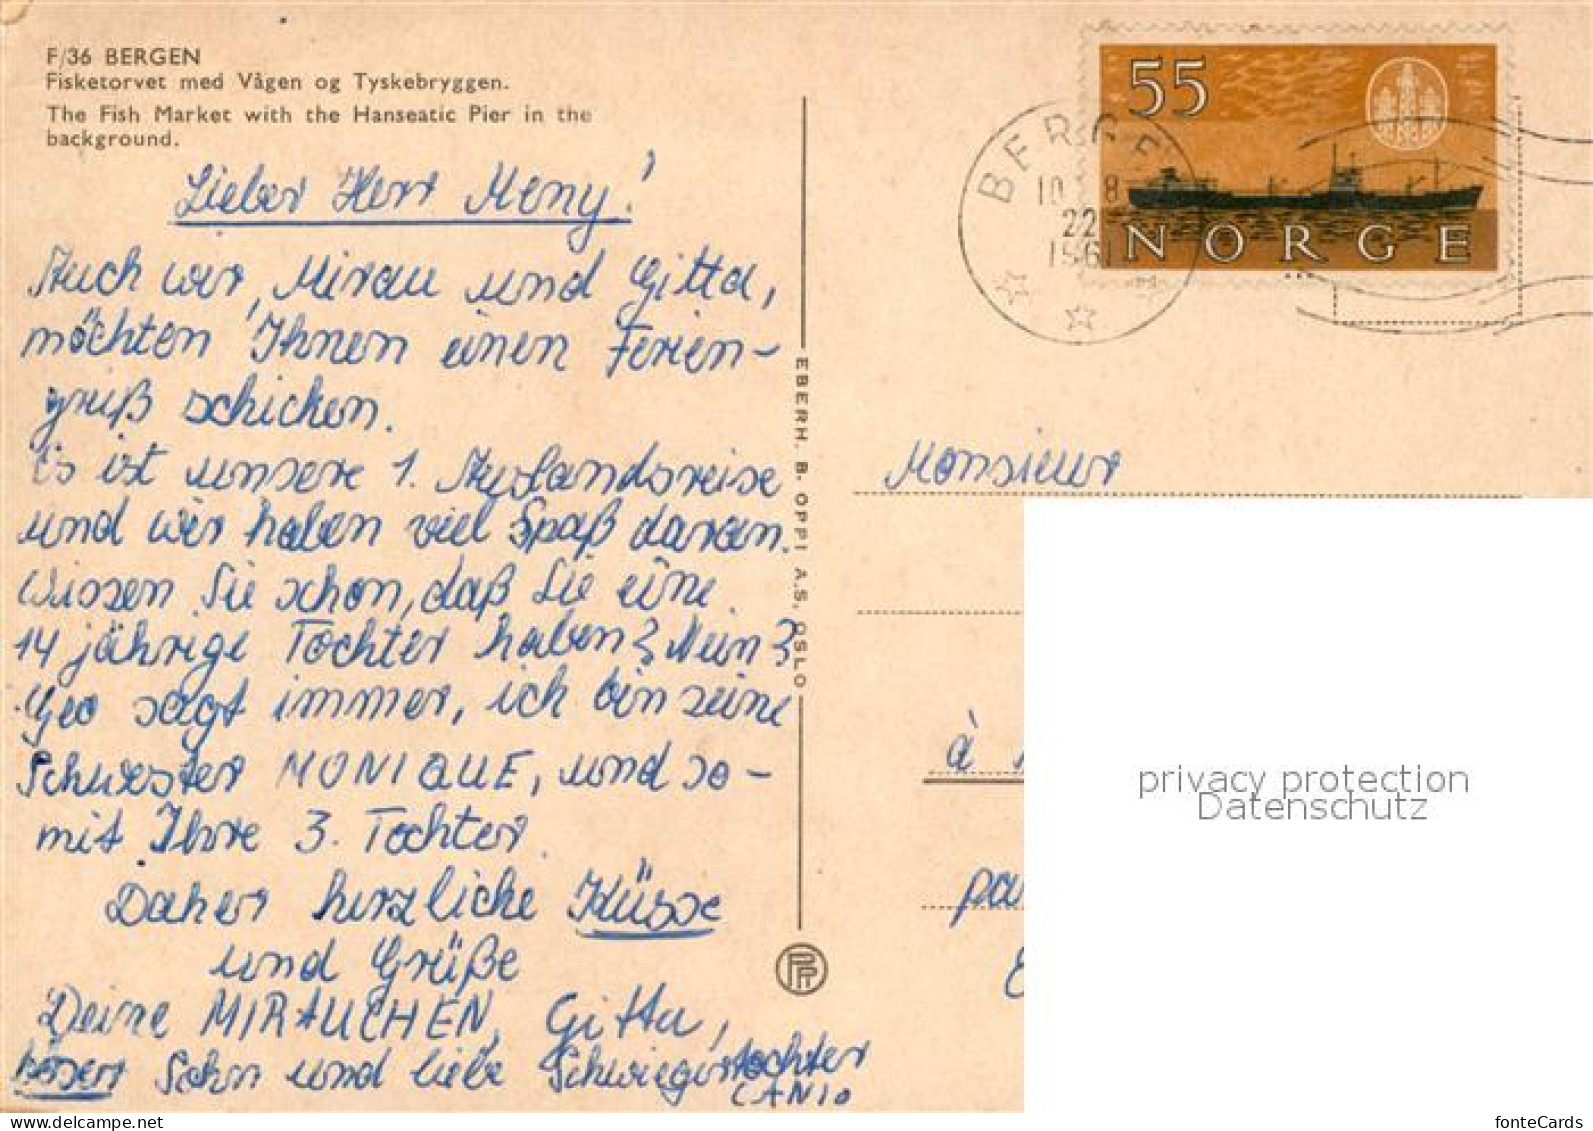 F/36 BERGEN
Fisketorvet med Vågen og Tyskebryggen.
The Fish Market with the Hanseatic Pier in the
background.
Lieber Herr Meny!
Auch wir, Mirau und Gitta,
möchten Ihnen einen Ferien-
gruß schicken.
Es ist unsere 1. Auslandsreise
und wir haben viel Spaß daran.
Wissen Sie schon, daß Sie eine
14 jährige Tochter haben? Nein?
Geo sagt immer, ich bin seine
Schwester MONIQUE, und so-
mit Ihre 3. Tochter.
Daher herzliche Küsse
und Grüße
Deine MIRAUCHEN, Gitta,
Sohn und liebe Schwiegertochter
EBERH. B. OPPI A.S. OSLO
PP
BERGE
10 8
22
1961
55
NORGE
Monsieur
à
privacy protection
Datenschutz
fonteCards